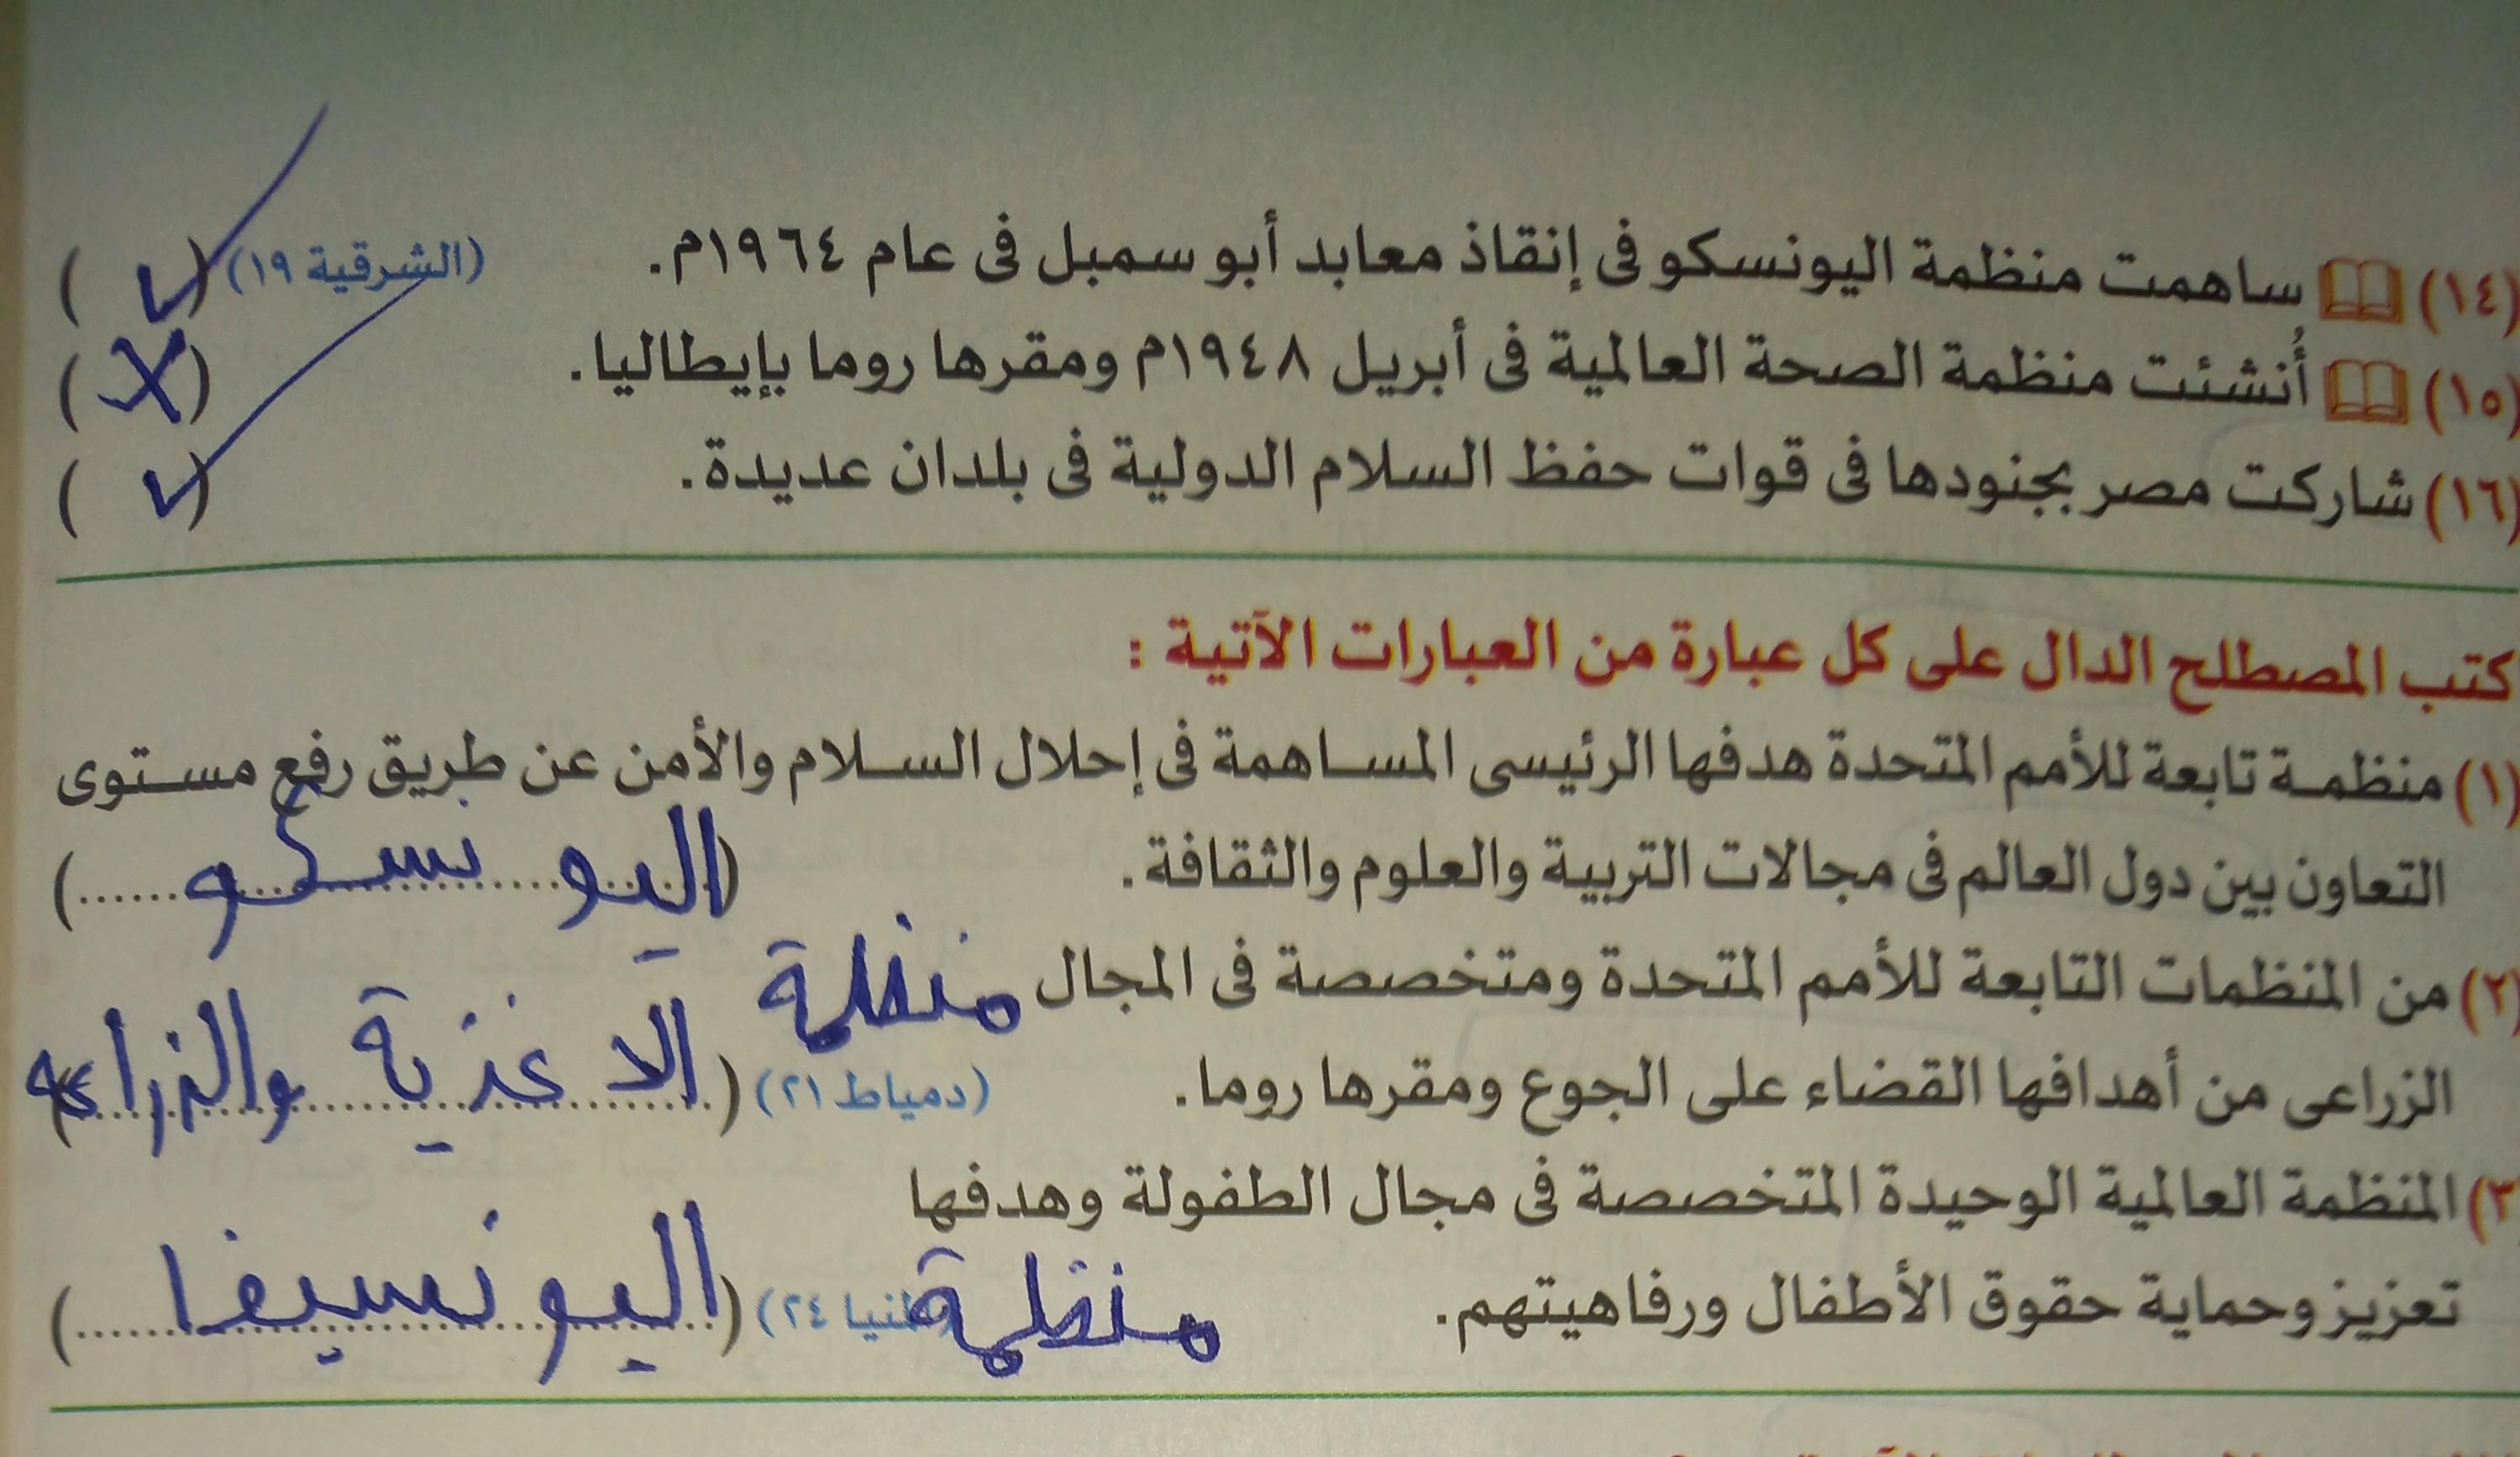 (١٤) ساهمت منظمة اليونسكو فى إنقاذ معابد أبو سمبل فى عام ١٩٦٤م. (الشرقية ١٩) (✓)
(١٥) أُنشئت منظمة الصحة العالمية فى أبريل ١٩٤٨م ومقرها روما بإيطاليا. (X)
(١٦) شاركت مصر بجنودها فى قوات حفظ السلام الدولية فى بلدان عديدة. (✓)
كتب المصطلح الدال على كل عبارة من العبارات الآتية :
(١) منظمة تابعة للأمم المتحدة هدفها الرئيسى المساهمة فى إحلال السلام والأمن عن طريق رفع مستوى
التعاون بين دول العالم فى مجالات التربية والعلوم والثقافة. (اليونسكو)
(٢) من المنظمات التابعة للأمم المتحدة ومتخصصة فى المجال منظمة
الزراعى من أهدافها القضاء على الجوع ومقرها روما. (دمياط ٢١) (الاغذية والزراعة)
٣) المنظمة العالمية الوحيدة المتخصصة فى مجال الطفولة وهدفها
تعزيز وحماية حقوق الأطفال ورفاهيتهم. منظمة ٢٤) (اليونسيفا)